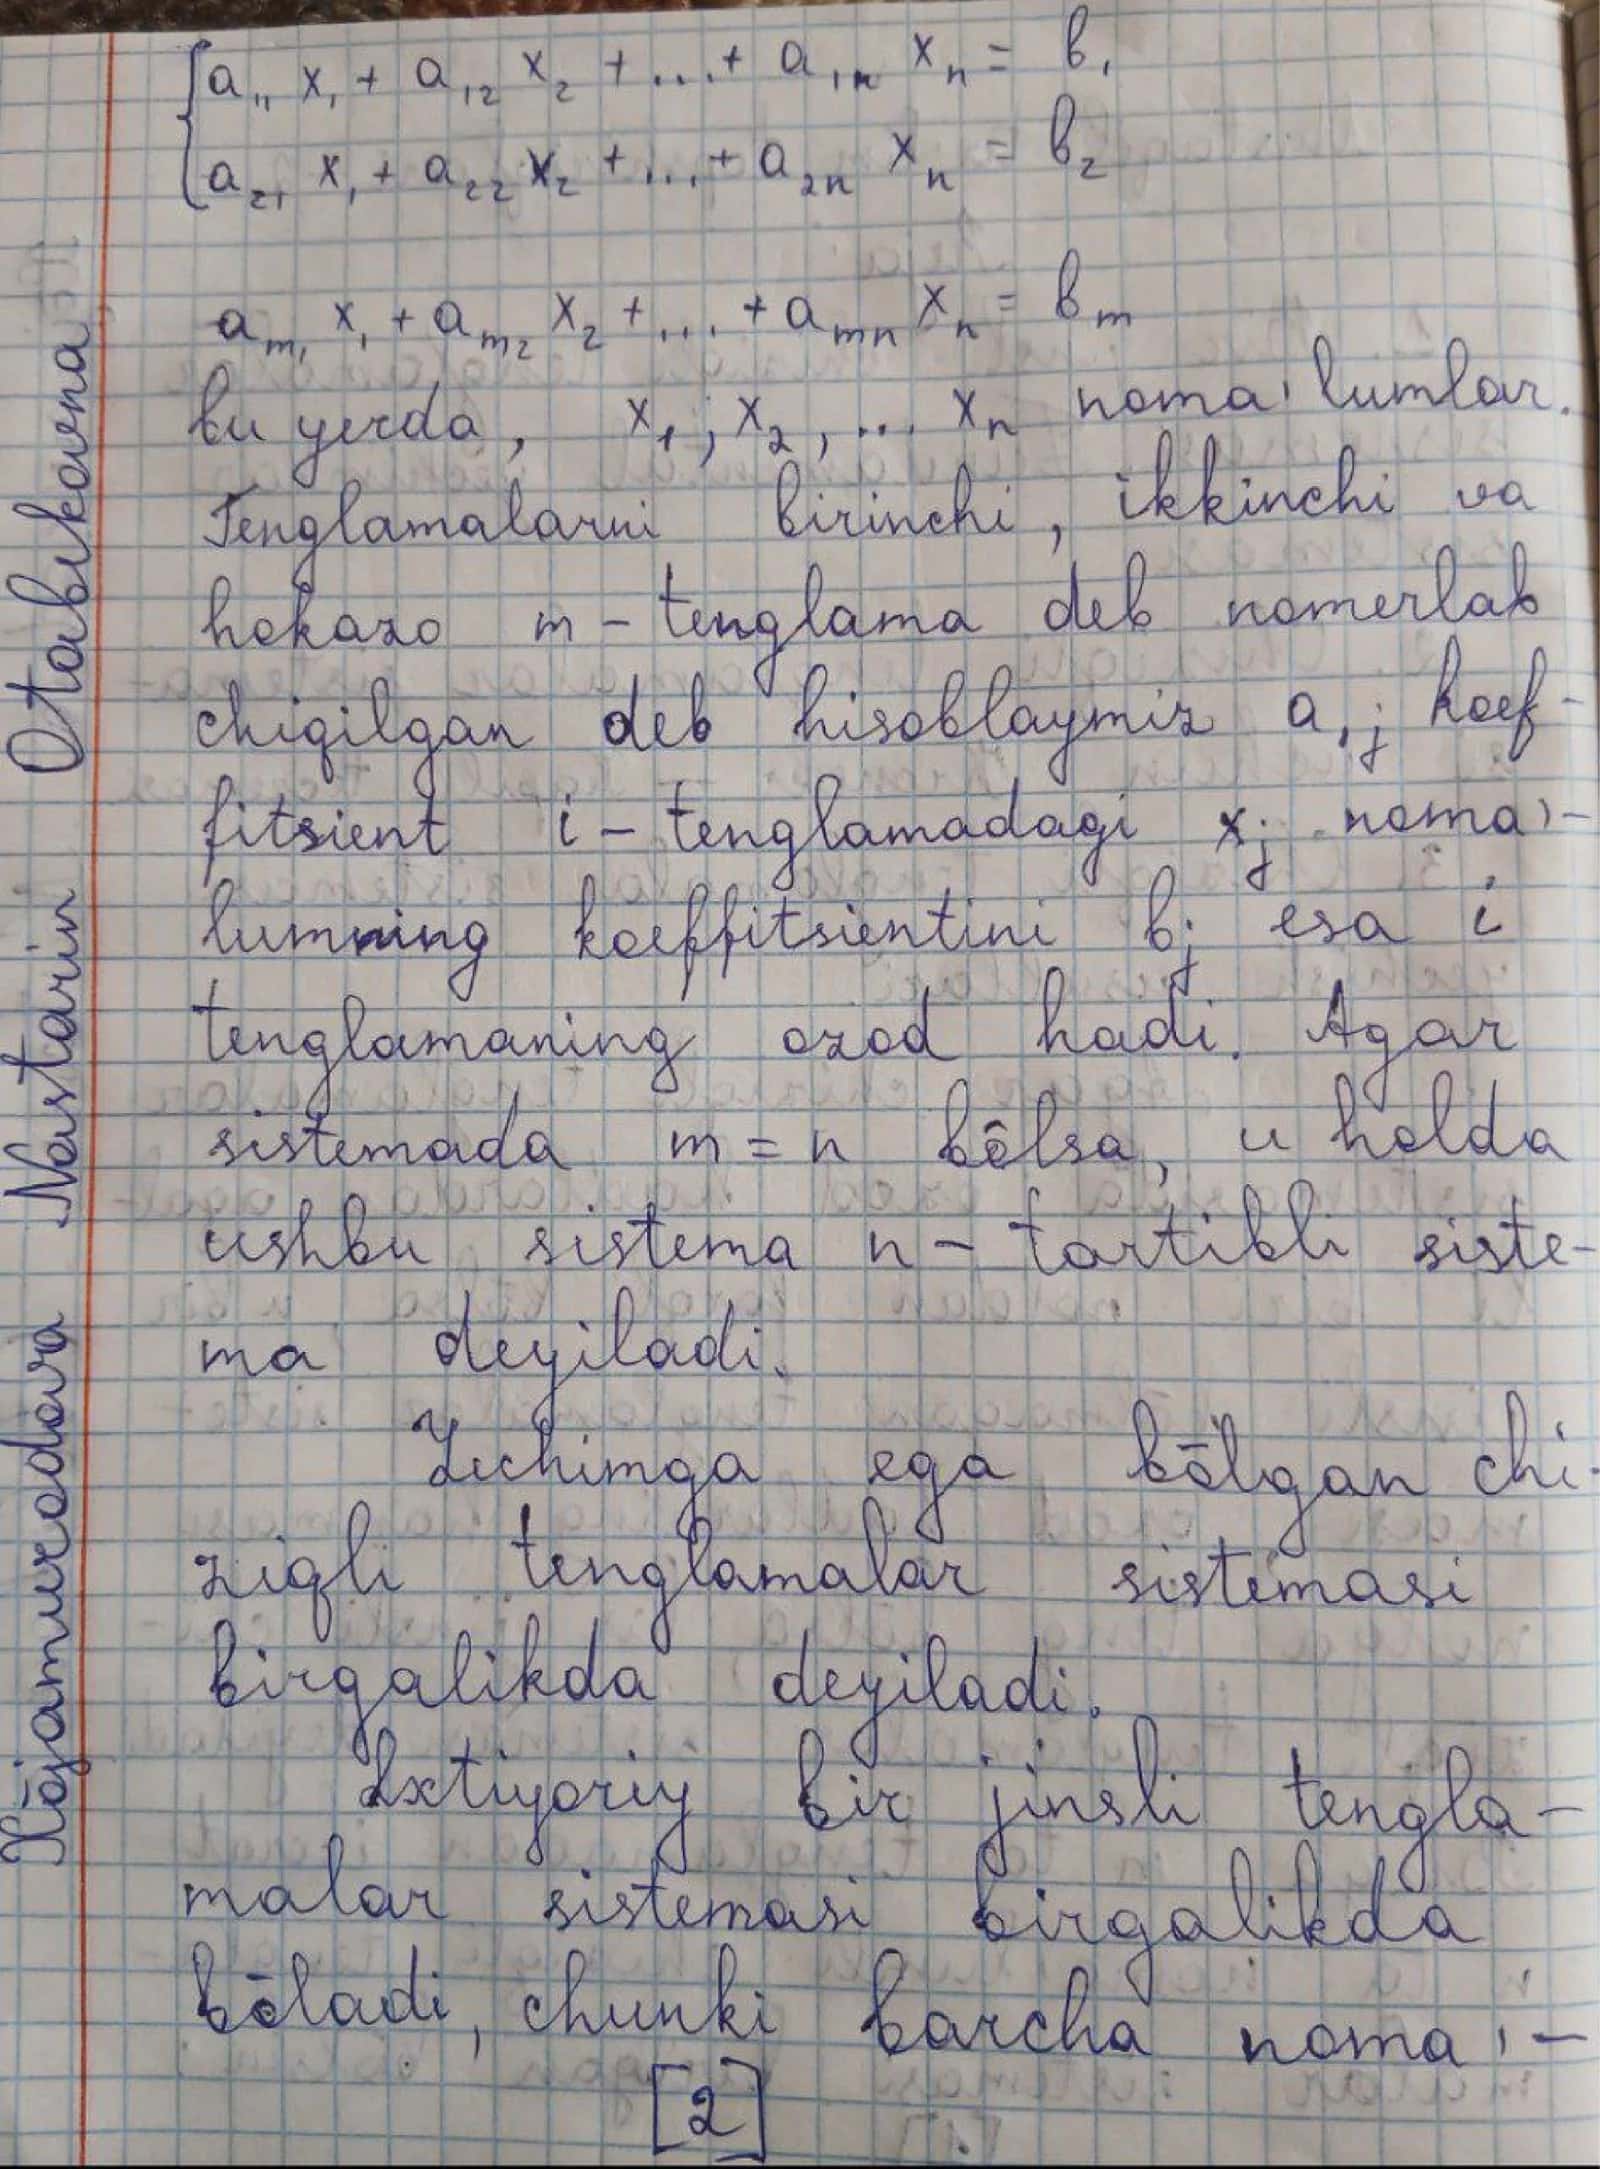 a₁₁ x₁ + a₁₂ x₂ + ... + a₁ₙ xₙ = b₁
a₂₁ x₁ + a₂₂ x₂ + ... + a₂ₙ xₙ = b₂
aₘ₁ x₁ + aₘ₂ x₂ + ... + aₘₙ xₙ = bₘ
bu yerda, x₁, x₂, ... xₙ noma'lumlar.
Tenglamalarni birinchi, ikkinchi va
hokazo m - tenglama deb nomerlab
chiqilgan deb hisoblaymiz aᵢⱼ koef-
fitsient i - tenglamadagi xⱼ noma'-
lumning koeffitsientini bⱼ esa i
tenglamaning ozod hadi. Agar
sistemada m = n bôlsa, u holda
ushbu sistema n - tartibli siste-
ma deyiladi.
Yechimga ega bōlgan chi-
ziqli tenglamalar sistemasi
birgalikda deyiladi.
Ixtiyoriy bir jinsli tengla-
malar sistemasi birgalikda
bōladi, chunki barcha noma'-
[2]
Xōjamurodova Nastarin Otabekovna